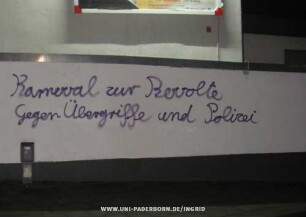 Karneval zur Revolte
Gegen Übergriffe und Polizei
WWW.UNI-PADERBORN.DE/INGRID